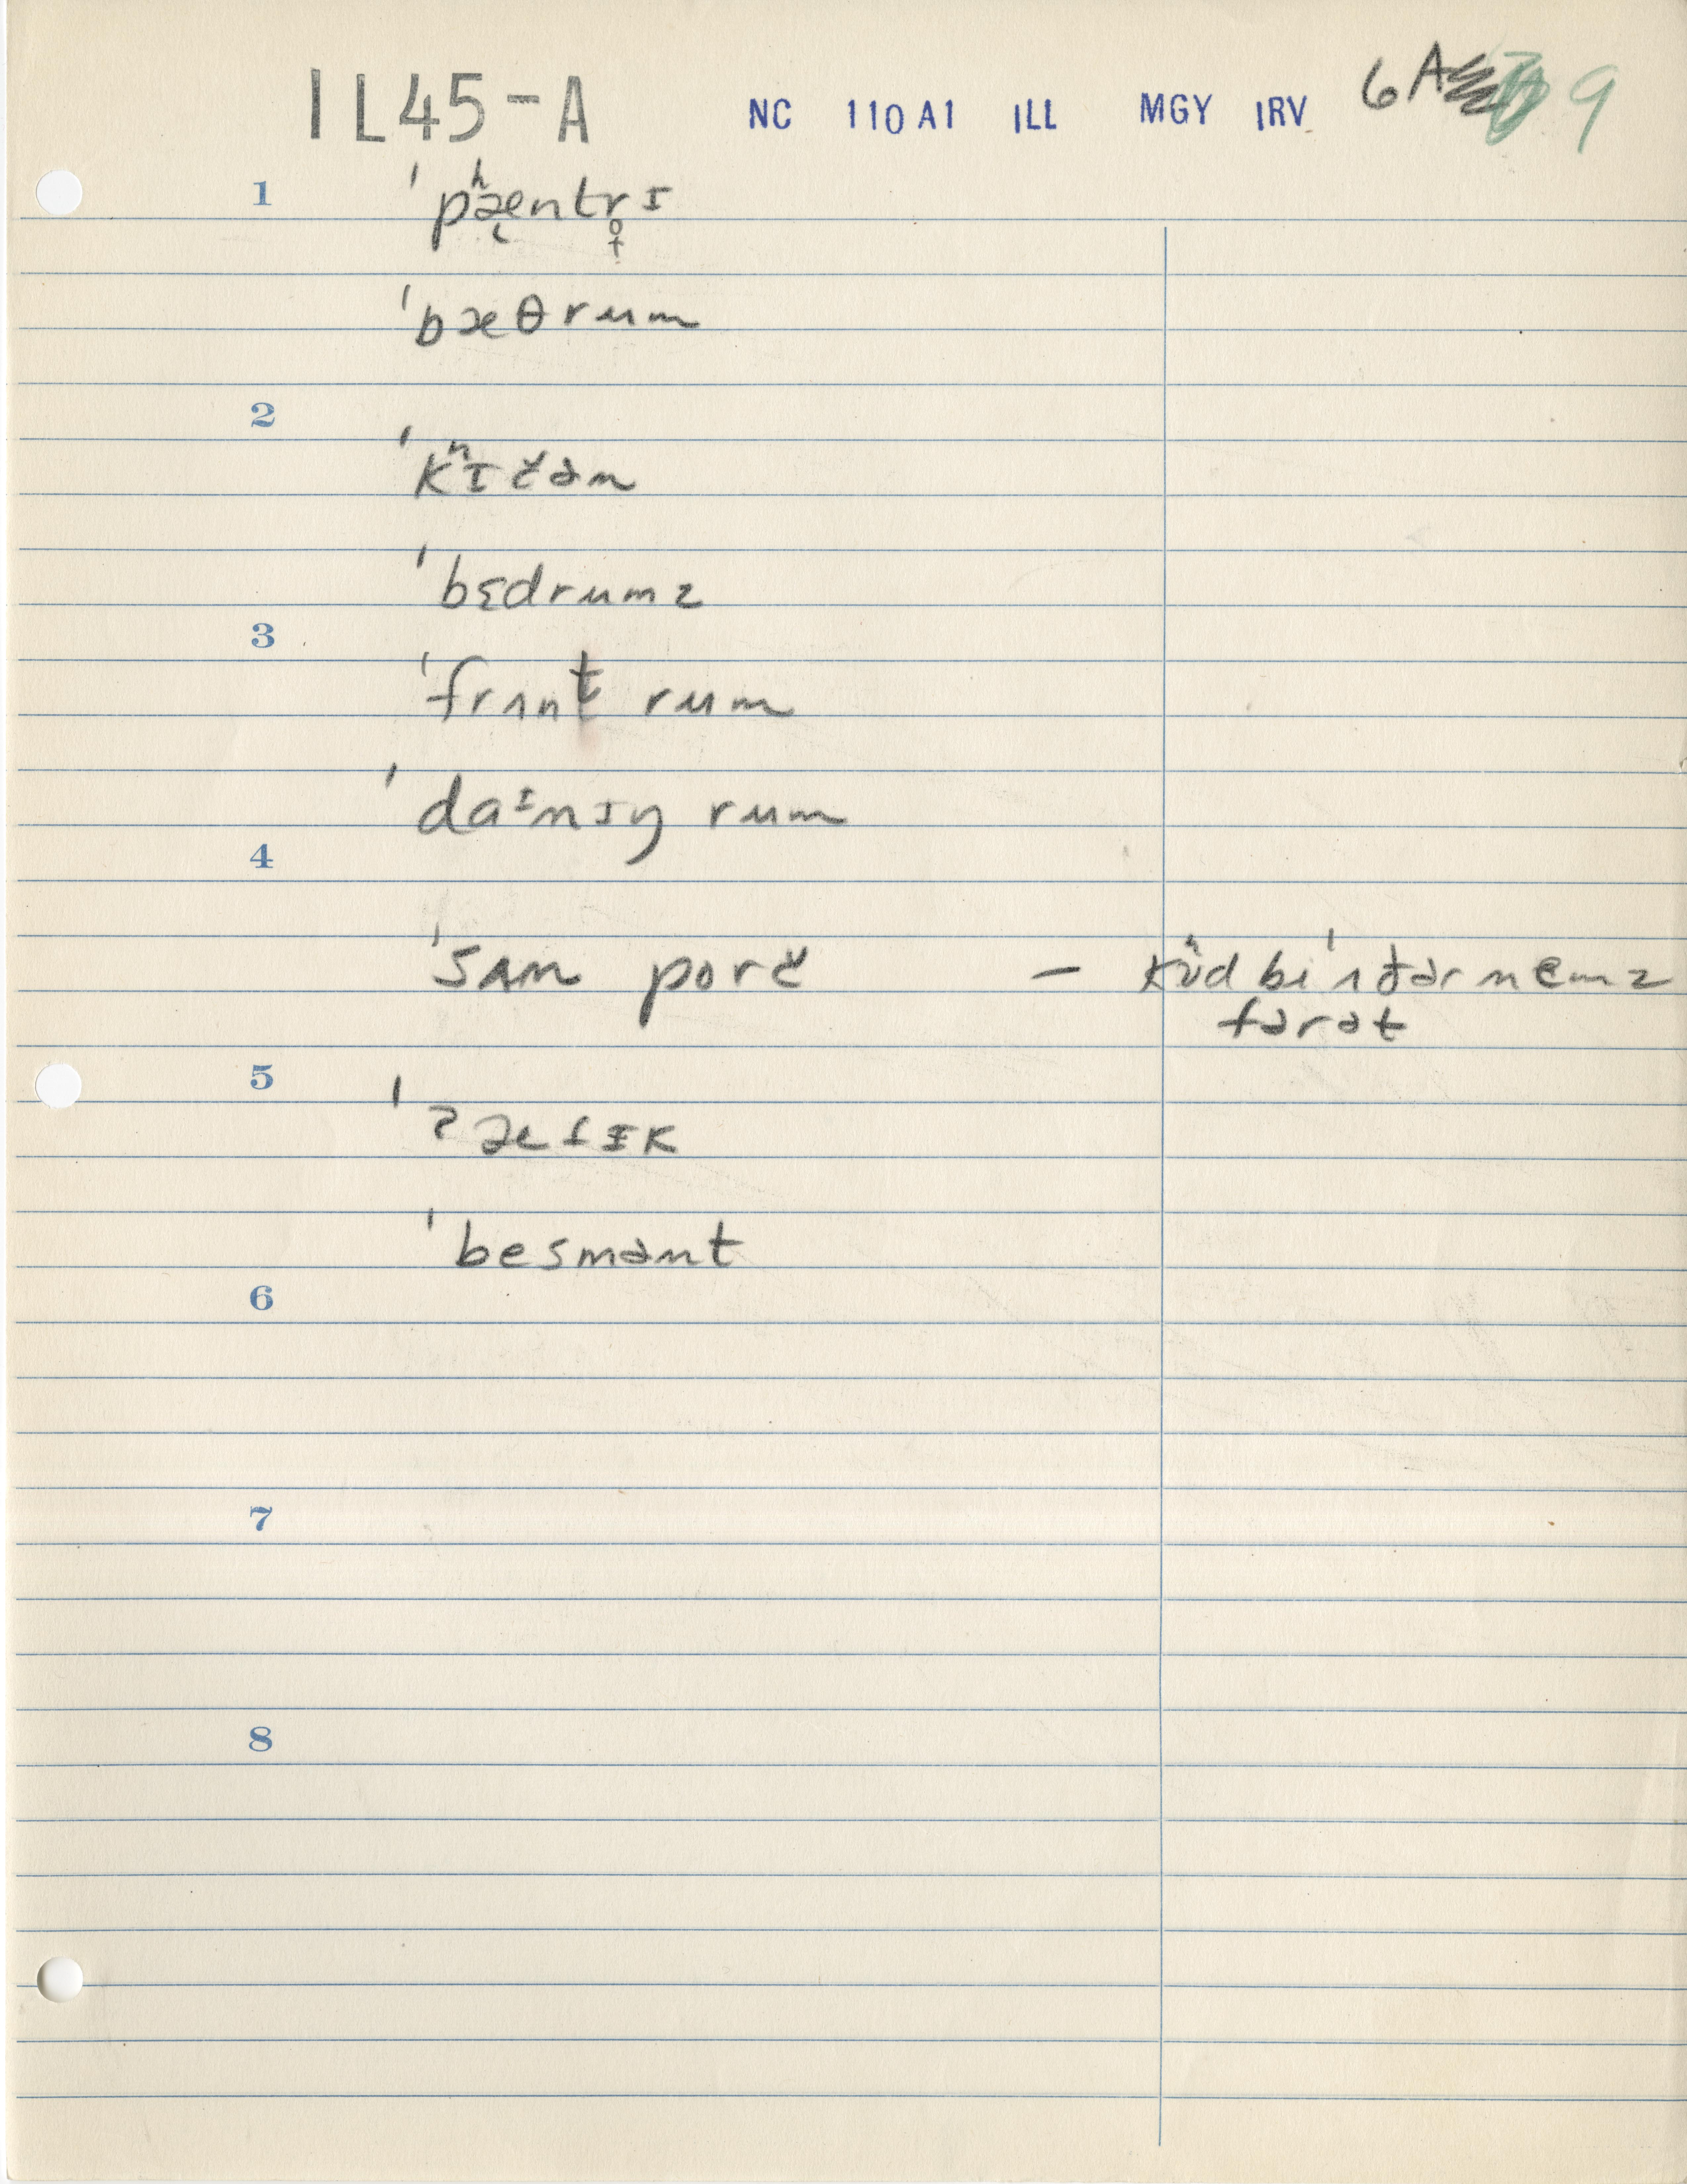 IL45-A NC 110 A1 ILL MGY IRV 6A 9
1 ˈpʰæ̨ntr̥ɪ
ˈbæθrum
2 ˈkʰɪčən
ˈbɛdrumz
3 ˈfrʌnt rum
ˈdaᶦnɪŋ rum
4
ˈsʌn porč – kʰʊd bi ˈʌðər nemz
fərət
5
ˈʔætɪk
ˈbesmənt
6
7
8